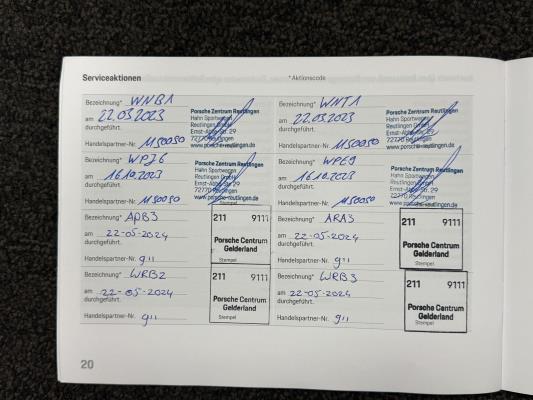 Serviceaktionen
*Aktionscode
Bezeichnung* WNB1
am 22.03.2023
durchgeführt.
Handelspartner-Nr. 1150050
Porsche Zentrum Reutlingen
Hahn Sportwagen
Reutlingen GmbH
Ernst-Abbe-Str. 29
72770 Reutlingen
www.porsche-reutlingen.de
Bezeichnung* WNT1
am 22.03.2023
durchgeführt.
Handelspartner-Nr. 1150050
Porsche Zentrum Reutlingen
Hahn Sportwagen
Reutlingen GmbH
Ernst-Abbe-Str. 29
72770 Reutlingen
www.porsche-reutlingen.de
Bezeichnung* WPJ6
am 16.10.2023
durchgeführt.
Handelspartner-Nr. 1150050
Porsche Zentrum Reutlingen
Hahn Sportwagen
Reutlingen GmbH
Ernst-Abbe-Str. 29
72770 Reutlingen
www.porsche-reutlingen.de
Stempel
Bezeichnung* WPE9
am 16.10.2023
durchgeführt.
Handelspartner-Nr. 1150050
Porsche Zentrum Reutlingen
Hahn Sportwagen
Reutlingen GmbH
Ernst-Abbe-Str. 29
72770 Reutlingen
www.porsche-reutlingen.de
Bezeichnung* APB3
am 22-05-2024
durchgeführt.
Handelspartner-Nr. 911
211 9111
Porsche Centrum
Gelderland
Stempel
Bezeichnung* ARA3
am 22-05-2024
durchgeführt.
Handelspartner-Nr. 911
211 9111
Porsche Centrum
Gelderland
Stempel
Bezeichnung* WRB2
am 22-05-2024
durchgeführt.
Handelspartner-Nr. 911
211 9111
Porsche Centrum
Gelderland
Stempel
Bezeichnung* WRB3
am 22-05-2024
durchgeführt.
Handelspartner-Nr. 911
211 9111
Porsche Centrum
Gelderland
Stempel
20